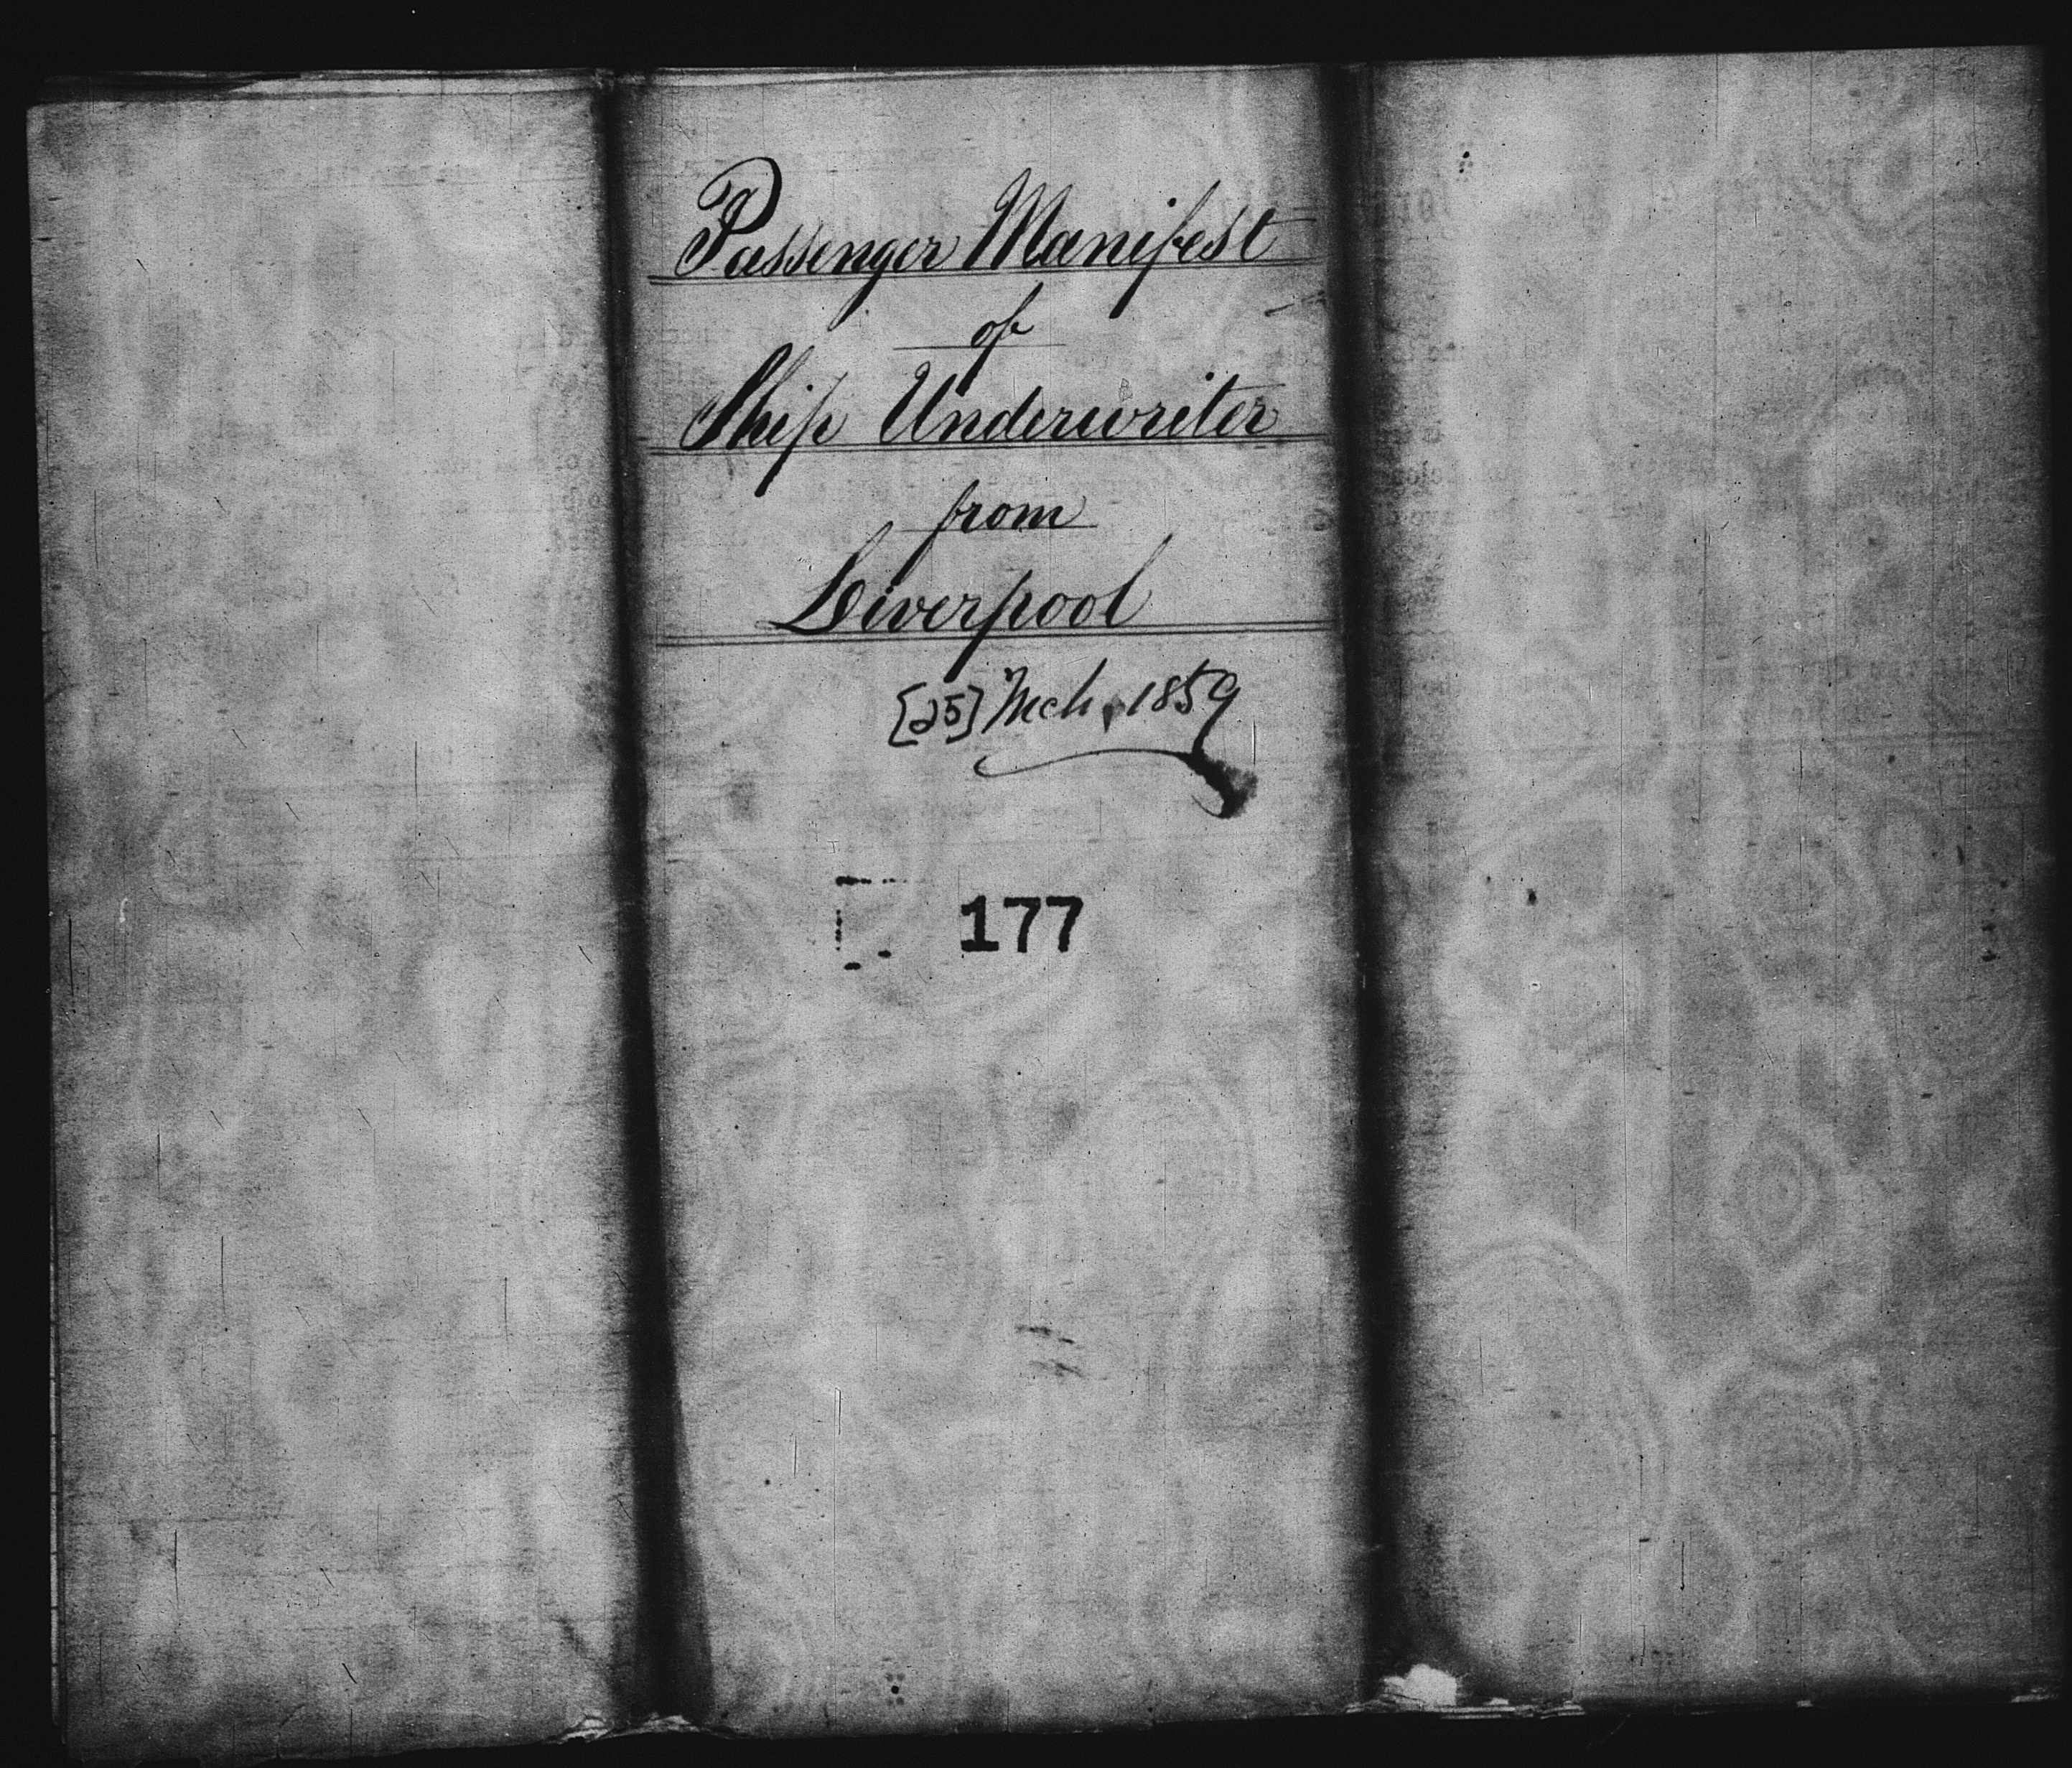 Passenger Manifest
of
Ship Underwriter
from
Liverpool
[25] Mch, 1859
177